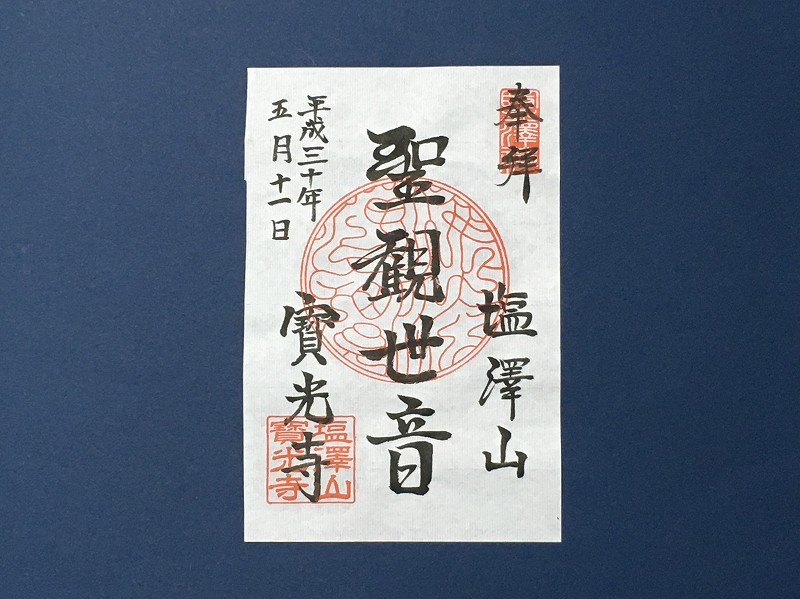 奉拝
塩澤山
聖観世音
寳光寺
平成三十年
五月十一日
塩澤山
寳光寺